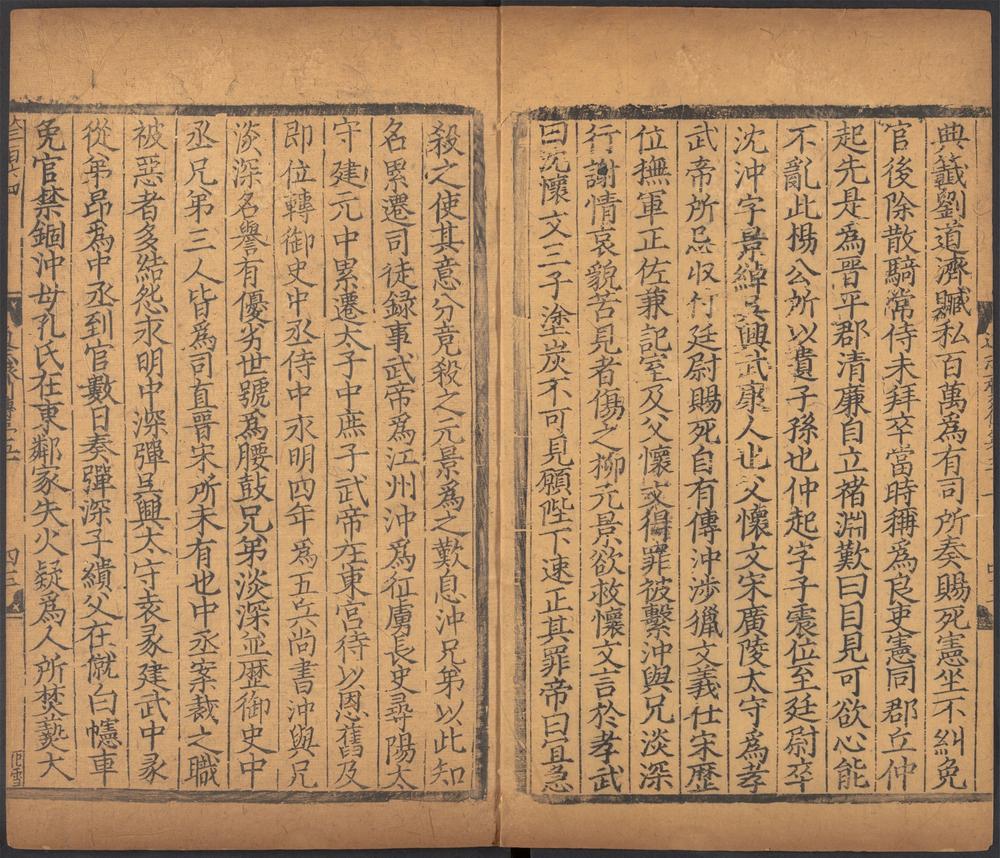 典籖劉道濟贓私百萬爲有司所奏賜死憲坐不糾免
官後除散騎常侍未拜卒當時稱爲良吏憲同郡丘仲
起先是爲晋平郡清廉自立褚淵歎曰目見可欲心能
不亂此楊公所以遺子孫也仲起字子震位至廷尉卒
沈沖字景綽吳興武康人也父懷文宋廣陵太守爲孝
武帝所忌收付廷尉賜死自有傳沖涉獵文義仕宋歷
位撫軍正佐兼記室及父懷文得罪被繫沖與兄淡深
行謝情哀貌苦見者傷之柳元景欲救懷文言於孝武
曰沈懷文三子塗炭不可見願陛下速正其罪帝曰宜急
殺之使其意分竟殺之元景爲之歎息沖兄弟以此知
名累遷司徒録事武帝爲江州沖爲征虜長史尋陽太
守建元中累遷太子中庶子武帝在東宮待以恩舊及
即位轉御史中丞侍中永明四年爲五兵尚書沖與兄
淡深名譽有優劣世號爲腰鼓兄弟淡深並歷御史中
丞兄弟三人皆爲司直晋宋所未有也中丞案裁之職
被惡者多結怨永明中深彈吳興太守袁彖建武中彖
從弟昂爲中丞到官數日奏彈深子繢父在僦白幰車
免官禁錮沖母孔氏在東鄰家失火疑爲人所焚爇大